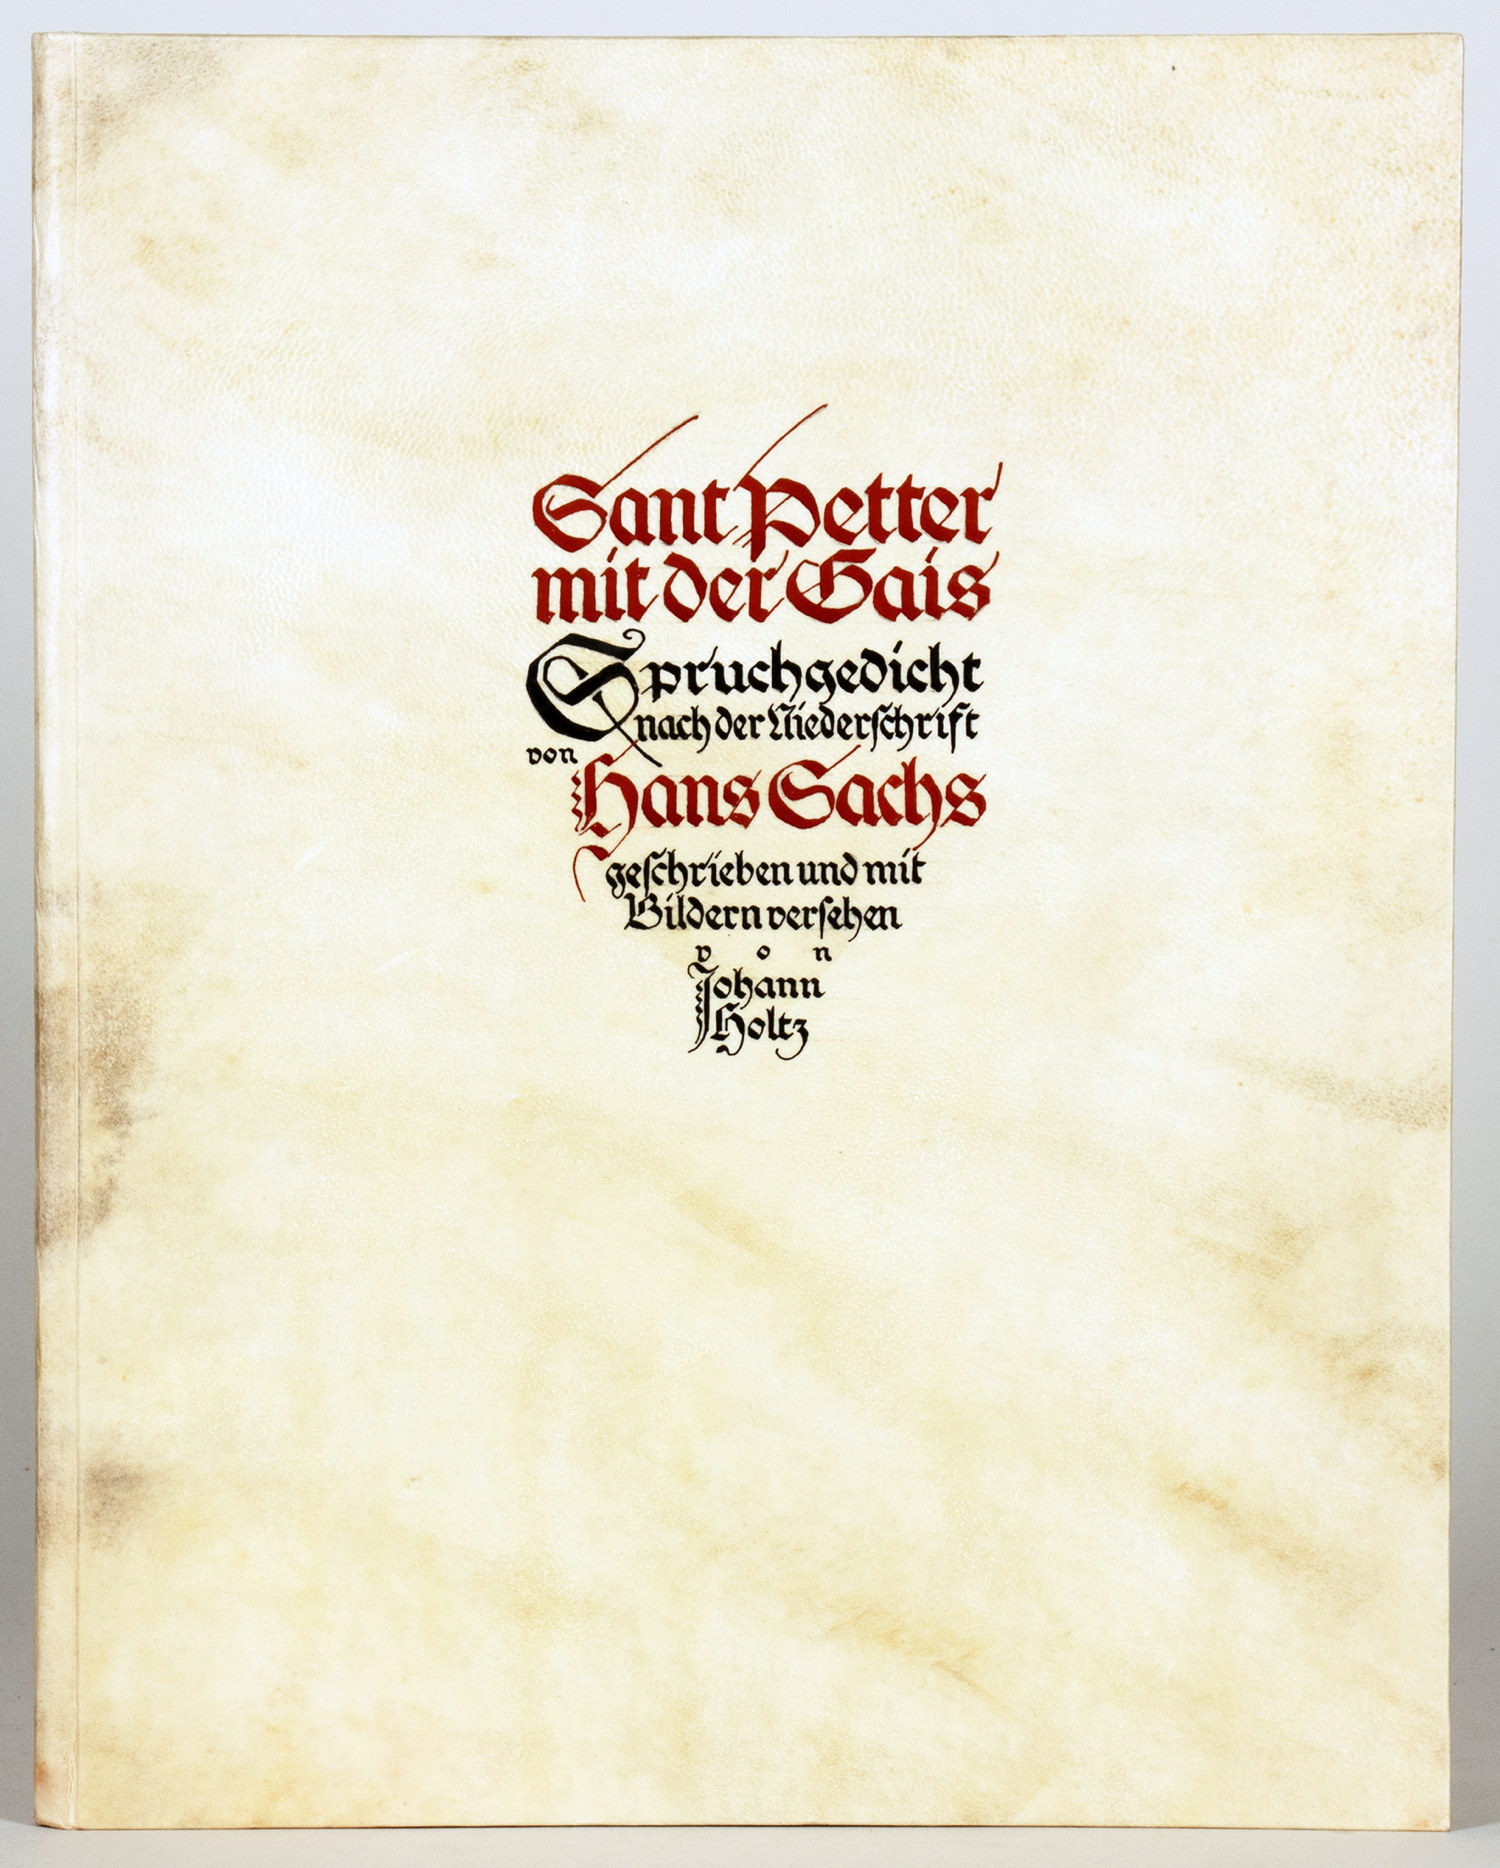 Sant Petter
mit der Gais
Spruchgedicht
nach der Niederſchrift
von
Hans Sachs
geſchrieben und mit
Bildern verſehen
von
Johann
Holtz